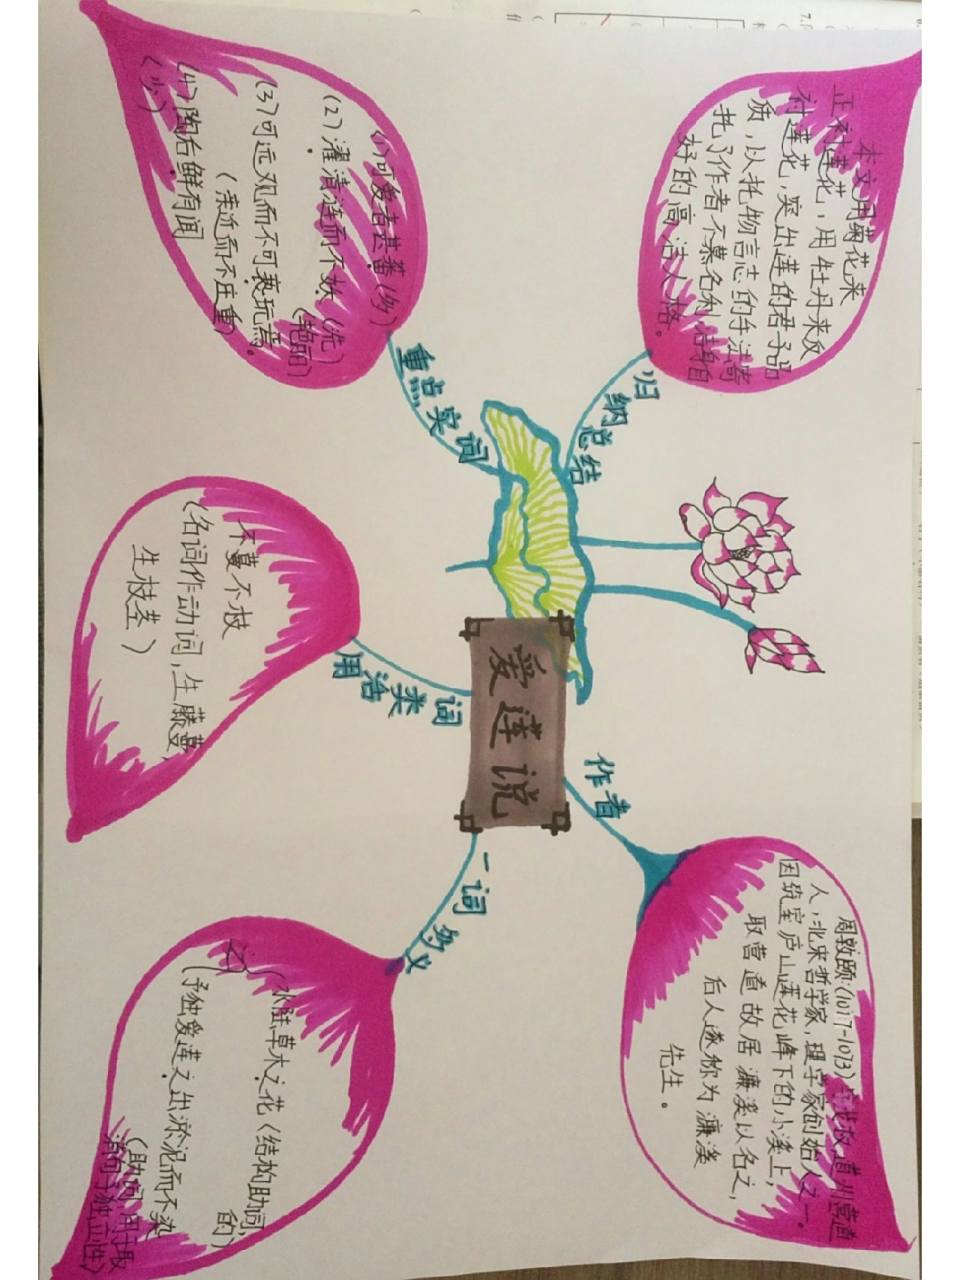 爱莲说
归纳总结
本文用菊花来
正衬莲花，用牡丹来反
衬莲花，突出莲的君子品
质，以托物言志的手法寄
托了作者不慕名利洁身自
好的高洁人格。
作者
周敦颐：(1017-1073)
道州营道
人，北宋哲学家，理学家创始人之一。
因筑室庐山莲花峰下的小溪上，
取营道故居濂溪以名之，
后人遂称为濂溪
先生。
重点实词
(1)可爱者甚蕃(多)
(2)濯清涟而不妖(洗)
(艳丽)
(3)可远观而不可亵玩焉。
(亲近而不庄重)
(4)陶后鲜有闻
(少)
词类活用
不蔓不枝
(名词作动词，生藤蔓，
生枝茎)
一词多义
之
水陆草木之花(结构助词，
的)
予独爱莲之出淤泥而不染
(助词用于取
消句子独立性)